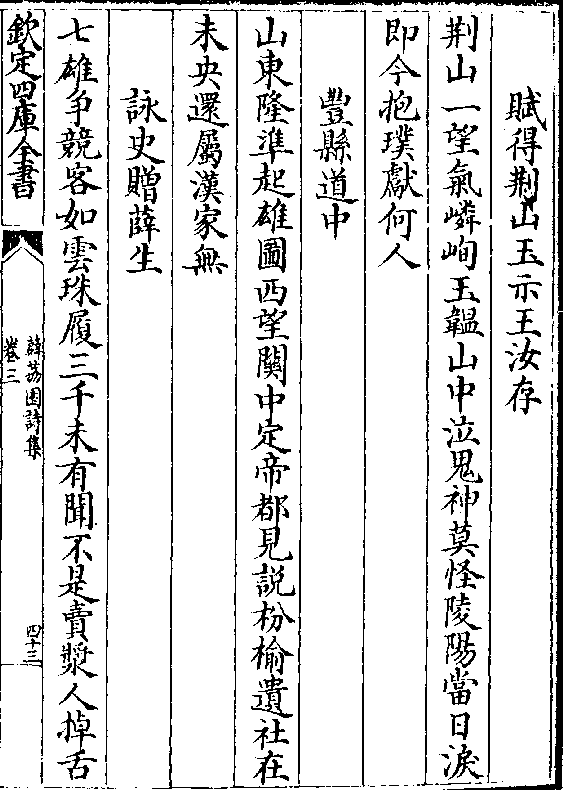 賦得荆山玉示王汝存
荆山一望氣嶙峋玉韞山中泣鬼神莫怪陵陽當日淚
即今抱璞獻何人
豐縣道中
山東隆準起雄圖西望關中定帝都見說枌榆遺社在
未央還屬漢家無
詠史贈薛生
七雄爭競客如雲珠履三千未有聞不是賣漿人掉舌
欽定四庫全書
薜荔園詩集
卷三
四十三